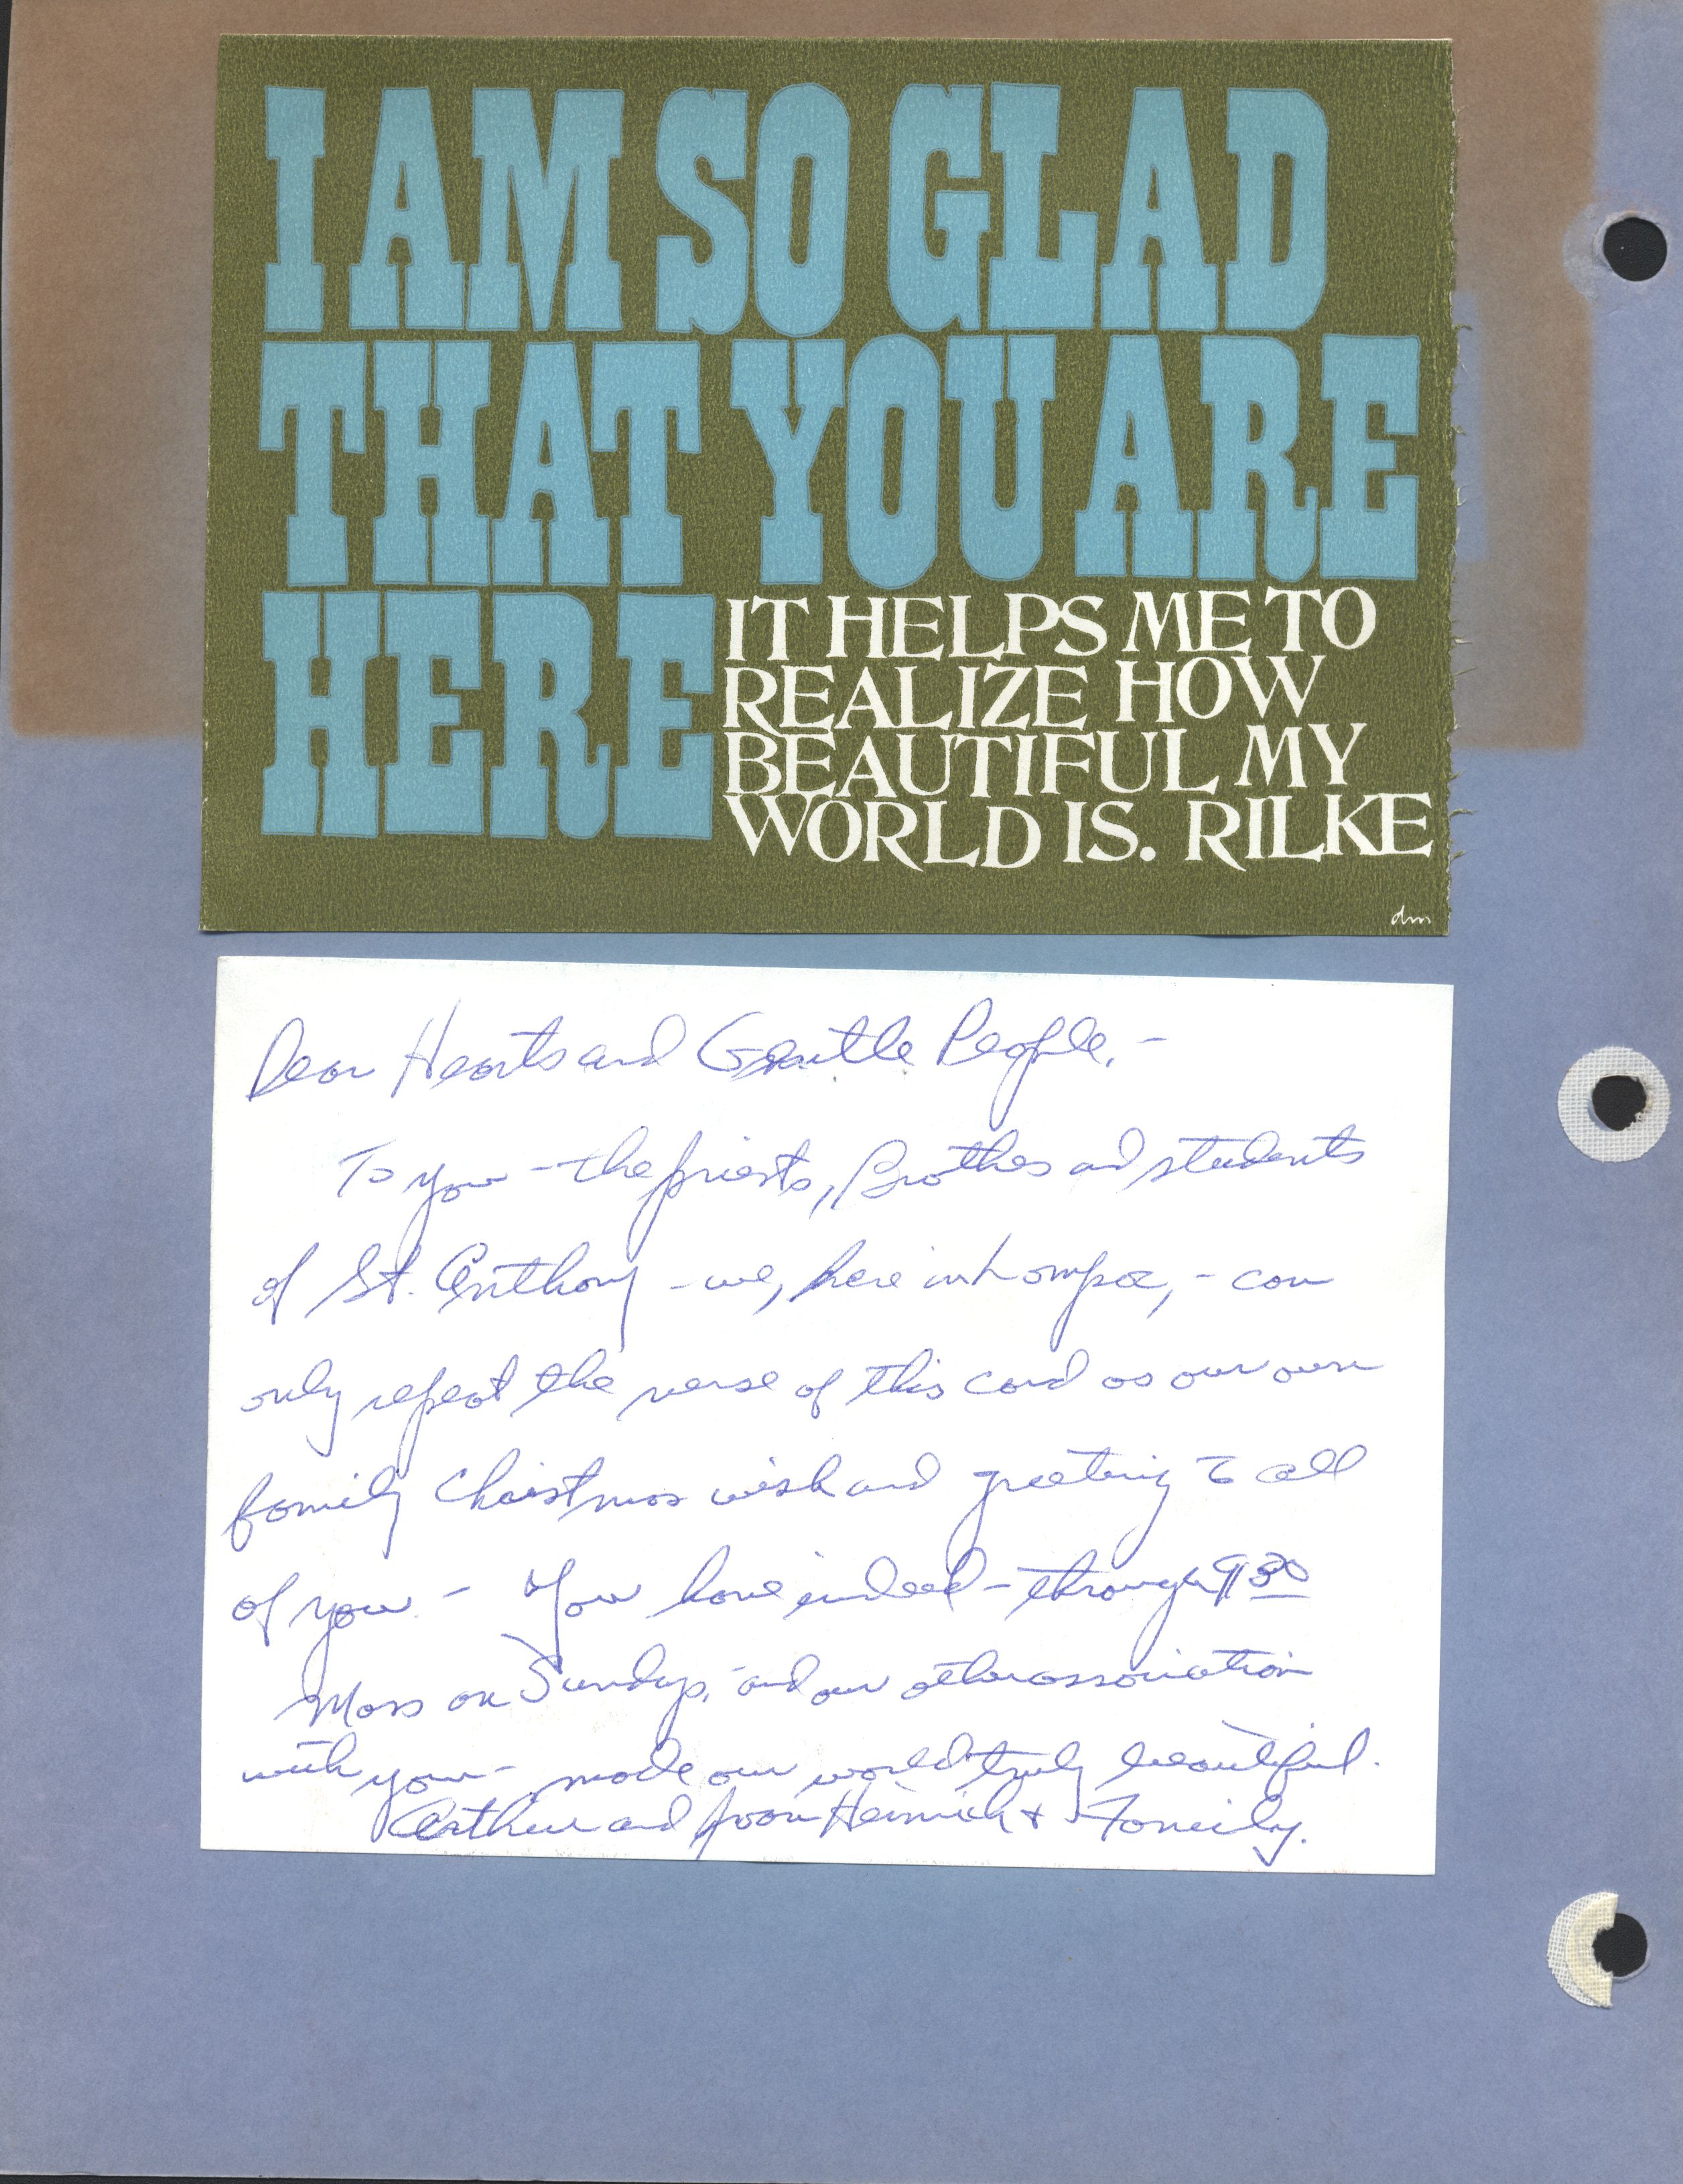 I AM SO GLAD
THAT YOU ARE
HERE
IT HELPS ME TO
REALIZE HOW
BEAUTIFUL MY
WORLD IS. RILKE
dm
Dear Hearts and Gentle People, -
To you - the priests, Brothers and students
of St. Anthony - we, here in Lompoc, - can
only repeat the verse of this card as our own
family Christmas wish and greeting to all
of you - You have indeed - through 9:30
Mass on Sundays, - and our other association
with you - made our world truly beautiful.
Arthur and Joan Heinrich & Family.